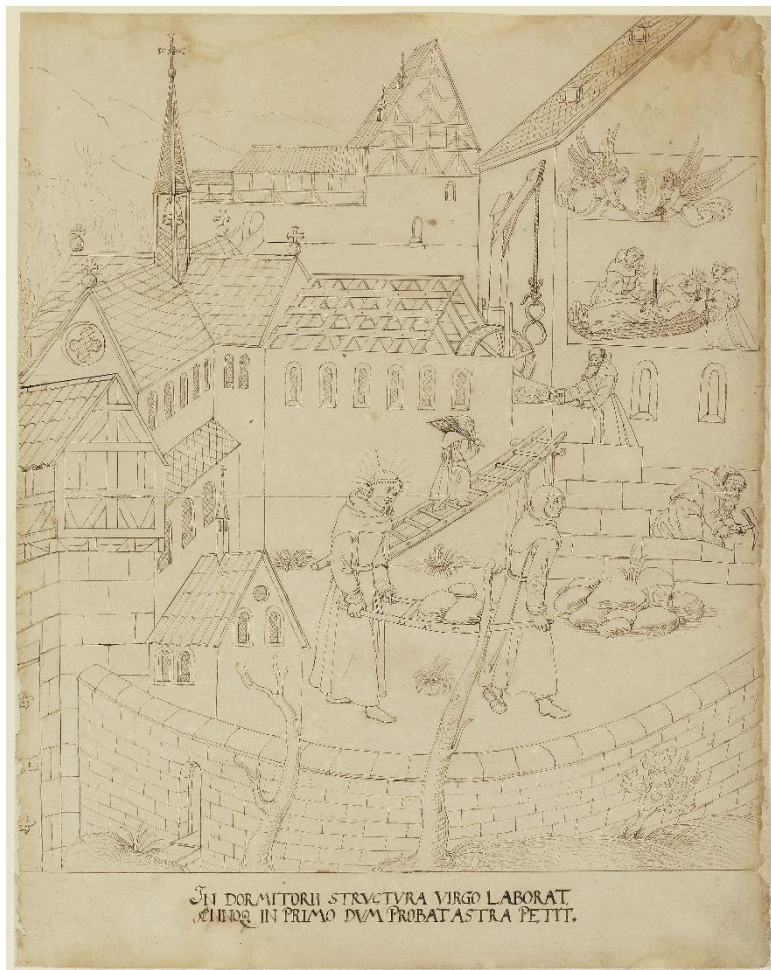 IN DORMITORII STRVCTVRA VIRGO LABORAT,
ANNOQ IN PRIMO DVM PROBAT ASTRA PETIT.